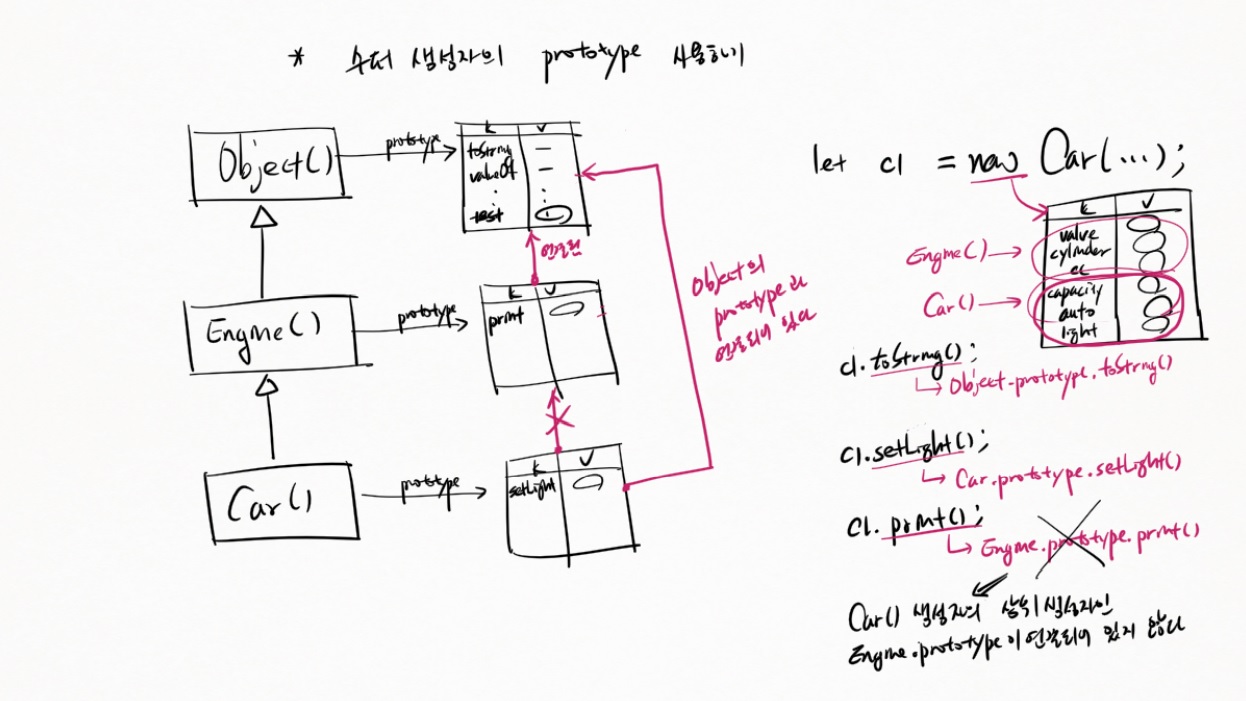 * 수퍼 생성자의 prototype 사용하기
Object()
prototype
k v
toString -
valueOf -
:
:
test
연결됨
Engine()
prototype
k v
print
Car()
prototype
k v
setLight
Object의
prototype과
연결되어 있다
let c1 = new Car(...);
k v
value
cylinder
cc
capacity
auto
light
Engine()
Car()
c1.toString();
Object.prototype.toString()
c1.setLight();
Car.prototype.setLight()
c1.print();
Engine.prototype.print()
Car() 생성자의 상위 생성자인
Engine.prototype이 연결되어 있지 않다